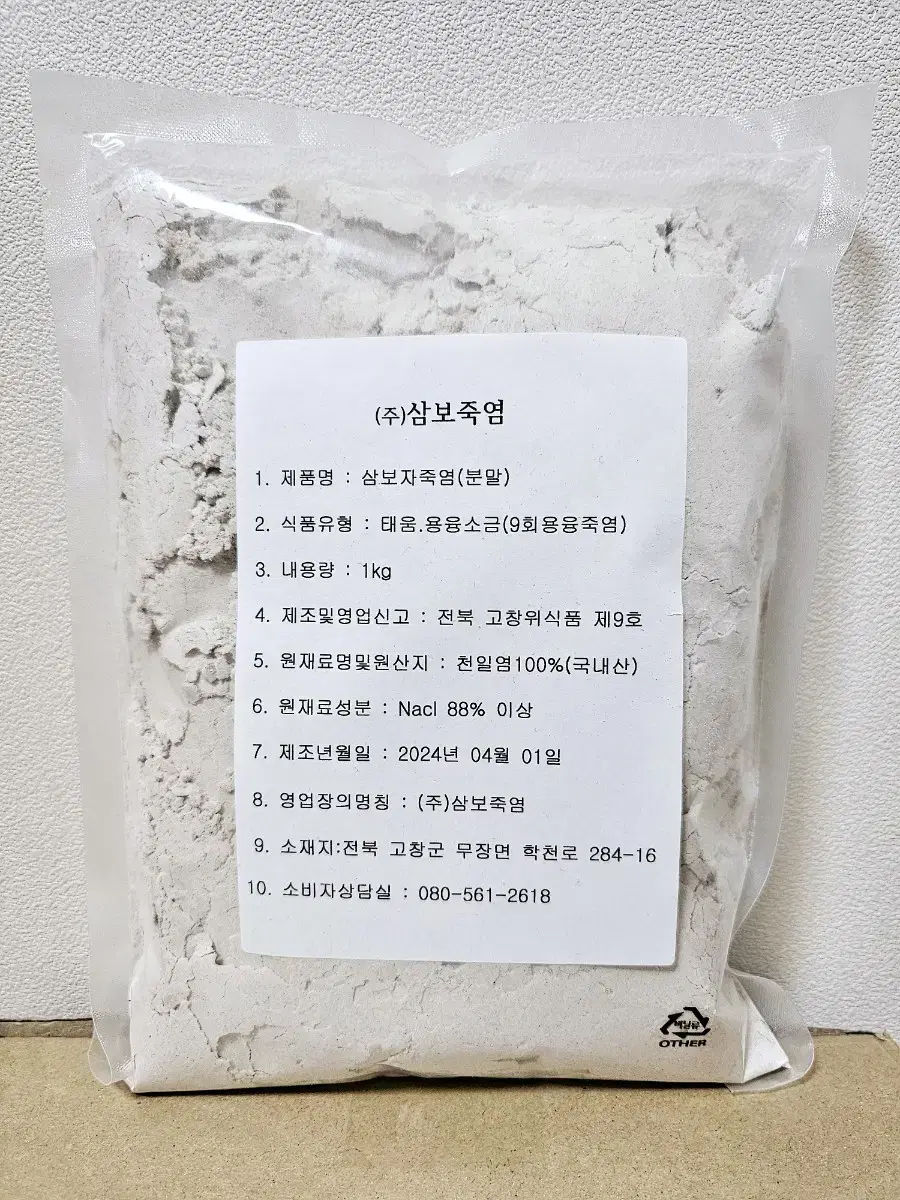 (주)삼보죽염
1. 제품명 : 삼보자죽염(분말)
2. 식품유형 : 태움.용융소금(9회용융죽염)
3. 내용량 : 1kg
4. 제조및영업신고 : 전북 고창위식품 제9호
5. 원재료명및원산지 : 천일염100%(국내산)
6. 원재료성분 : Nacl 88% 이상
7. 제조년월일 : 2024년 04월 01일
8. 영업장의명칭 : (주)삼보죽염
9. 소재지:전북 고창군 무장면 학천로 284-16
10. 소비자상담실 : 080-561-2618
비닐류
OTHER